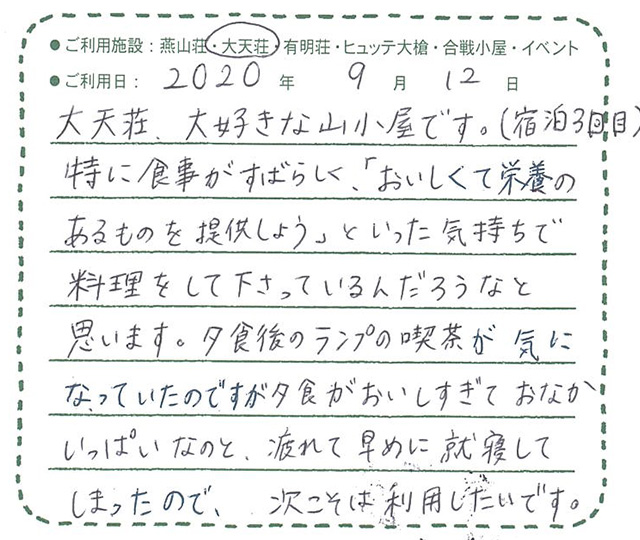 ●ご利用施設：燕山荘・大天荘・有明荘・ヒュッテ大槍・合戦小屋・イベント
●ご利用日：2020年 9月 12日
大天荘、大好きな山小屋です。(宿泊3回目)
特に食事がすばらしく、「おいしくて栄養の
あるものを提供しよう」といった気持ちで
料理をして下さっているんだろうなと
思います。夕食後のランプの喫茶が気に
なっていたのですが夕食がおいしすぎておなか
いっぱいなのと、疲れて早めに就寝して
しまったので、次こそは利用したいです。